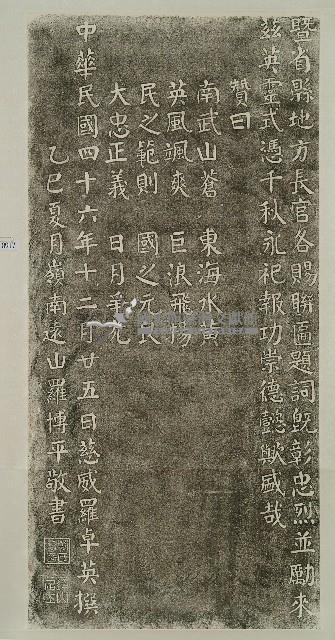 暨省縣地方長官各賜聯匾題詞既彰忠烈並勵來
茲英靈式憑千秋永祀報功崇德懿歟盛哉
贊曰
南武山蒼 東海水黃
英風颯爽 巨浪飛揚
民之範則 國之元良
大忠正義 日月爭光
中華民國四十六年十二月廿五日慈威羅卓英撰
乙巳夏月嶺南遠山羅博平敬書